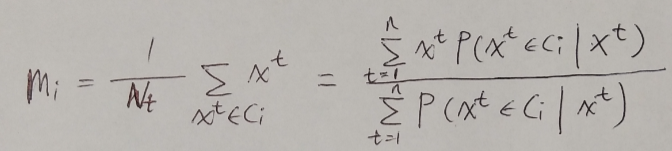 m_i = \frac{1}{N_t} \sum_{x^t \in C_i} x^t = \frac{\sum_{t=1}^{n} x^t P(x^t \in C_i | x^t)}{\sum_{t=1}^{n} P(x^t \in C_i | x^t)}